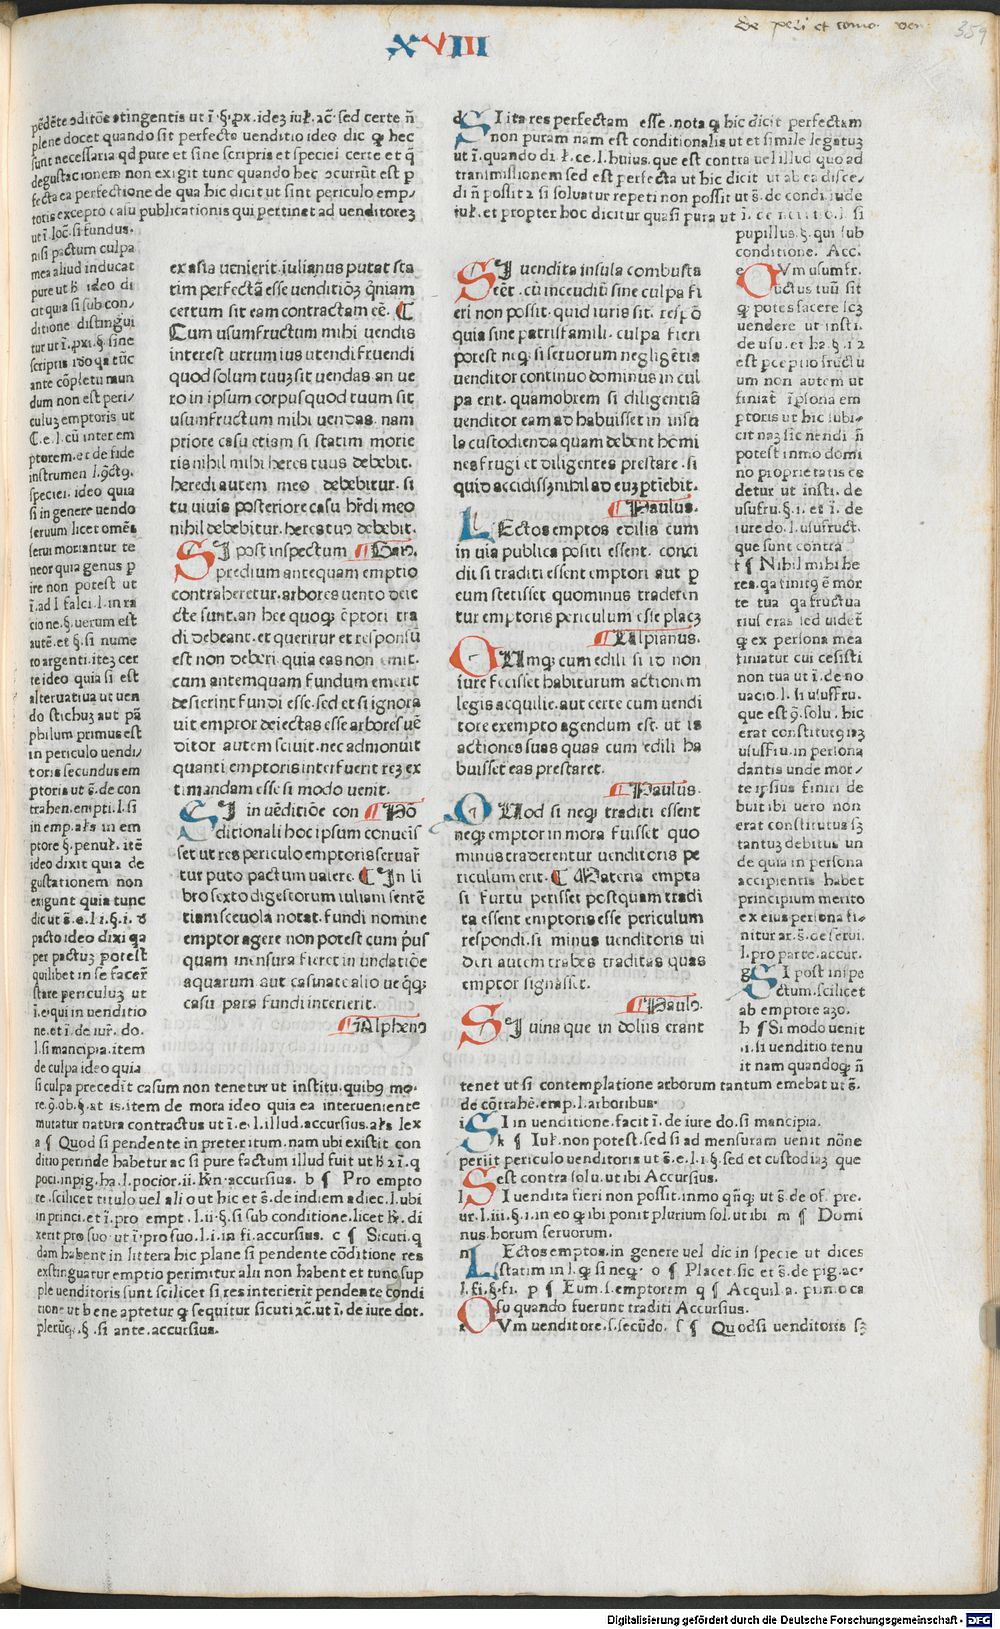 De peri et como ven
359
XVIII
pēdēte ↄditōe ↄtingentis ut ī·§.px.ideʒ iuł.ac̄.sed certe n̄
plene docet quando sit perfecto uenditio ideo dic ꝙ hec
sunt necessaria qd pure et sine scripris et speciei certe et q̄
degustacionem non exigit tunc quando hec ↄcurrūt est ꝑ
fecta ea perfectione de qua hic dicit ut sint periculo emp⸗
toris excepto casu publicationis qui pertinet ad uenditoreʒ
ut ī.loc̄.si fundus.
nisi pactum culpa
mea aliud inducat
pure ut ħ ideo di
cit quia si sub con⸗
ditione distingui
tur ut ī.pxi.§.sine
scripris ido qa tūc
ante cōpletū mun
dum non est peri⸗
culuʒ emptoris ut
C.e.l.cū inter em
ptorem.et de fide
instrumen l.ↄ̄ctꝯ.
speciei.ideo quia
si in genere uendo
seruum licet omēs
serui moriantur te
neor quia genus ꝑ
ire non potest ut
ī.ad l falci.l.in ra
cione.§.uerum est
autē.et §.si nume
ro argenti.iteʒ cer
te ideo quia si est
alteruatiua ut uen
do stichuʒ aut pā
philum primus est
in periculo uendi⸗
toris secundus em
ptoris ut s̄.de con
trahen.empti.l.si
in emp.ałs in em
ptore §.penuł.itē
ideo dixit quia de
gustationem non
exigunt quia tunc
dic ut s̄.e.l i.§.i.et
pacto ideo dixi qa
per pactuʒ potest
quilibet in se facer̄
stare periculuʒ ut
ī.e.qui in uenditio
ne.et ī.de iur̄.do.
l.si mancipia.item
de culpa ideo quia
si culpa precedit casum non tenetur ut institu.quibꝯ mo⸗
re.ↄ̄.ob.§.at is.item de mora ideo quia ea interueniente
mutatur natura contractus ut ī.e.l.illud.accursius.ałs lex
a ¶ Quod si pendente in preteritum.nam ubi existit con
ditio perinde habetur ac si pure factum illud fuit ut ħ 2 ī.q
poci.inpig.ha.l.pocior.ii.Rn̄.accursius. b ¶ Pro empto
re.scilicet titulo uel alio ut hic et s̄.de indiem adiec.l.ubi
in princi.et ī.pro empt.l.ii.§.si sub conditione.licet hr̄.di
xerit pro suo ut ī.pro suo.l.i.in fi.accursius. c ¶ Sicuti.q
dam habent in littera hic plane si pendente cōditione res
exstinguatur emptio perimitur alii non habent et tunc sup
ple uenditoris sunt scilicet si res interierit pendente condi
tione ut bene aptetur ꝙ sequitur sicuti ac̄.ut ī.de iure dot.
plerūqꝫ.§.si ante.accursius.
ex asia uenierit.iulianus putat sta
tim perfectā esse uenditiōʒ q̄niam
certum sit eam contractam eē. C
Cum usumfructum mihi uendis
interest utrum ius utendi fruendi
quod solum tuuʒ sit uendas.an ue
ro in ipsum corpus quod tuum sit
usumfructum mihi uendas.nam
priore casu etiam si statim morie
ris nihil mihi heres tuus debebit.
heredi autem meo debebitur.si
tu uiuis posteriore casu hr̄di meo
nihil debebitur.heres tuꝯ debebit.
SI post inspectum ¶ Gaiꝯ.
predium antequam emptio
contraheretur.arbores uento deie
cte sunt.an hee quoqꝫ ēptori tra
di debeant.et queritur et responsū
est non deberi.quia eas non emit.
cum antemquam fundum emerit
desierint fundi esse.sed et si ignora
uit emptor deiectas esse arbores uē
ditor autem sciuit.nec admonuit
quanti emptoris interfuerit reʒ ex
timandam esse si modo uenit.
SI in uēditiōe con ¶ Pō
ditionali hoc ipsum conueis̄
set ut res periculo emptoris seruar̄
tur puto pactum ualere. C In li
bro sexto digestorum iuliani sentē
tiam sceuola notat.fundi nomine
emptor agere non potest cum p̄us
quam mensura fieret inundatiōe
aquarum aut casmate alio ue qꝫqꝫ
casu pars fundi interierit.
¶ Alphenꝯ
d SI ita res perfectam esse.nota ꝙ hic dicit perfectam
non puram nam est conditionalis ut et simile legatuʒ
ut ī.quando di ł.ce.l.huius.que est contra uel illud quo ad
transmissionem sed est perfecta ut hic dicit ut ab ea disce⸗
di n̄ possit 2 si soluatur repeti non possit ut s̄.de condi iude
iuł.et propter hoc dicitur quasi pura ut ī.de noui o.l.si
pupillus.§.qui sub
conditione. Acc.
e QVm usumfr.
uctus tuū sit
ꝙ potes facere scʒ
uendere ut insti.
de usu.et ha.§.i 2
est pceptio fructu
um non autem ut
finiat īpsona em
ptoris ut hic subi⸗
cit naʒ sic uendi n̄
potest inmo domi
no proprietatis ce
detur ut insti.de
usufru.§.i.et ī.de
iure do.l.usufruct.
que sunt contra
f ¶ Nihil mihi he
res.qa finitꝯ ē mor
te tua qa fructua
rius eras sed uidet̄
ꝙ ex persona mea
finiatur cui cesisti
non tua ut ī.de no
uacio.l.si ususfru.
que est ↄ̄.solu.hic
erat constitutꝯ naʒ
ususfru.in persona
dantis unde mor⸗
te ipsius finiri de
buit ibi uero non
erat constitutus sʒ
tantuʒ debitus un
de quia in persona
accipientis habet
principium merito
ex eius persona fi⸗
nitur ar.s̄.de serui.
l.pro parte.accur.
g SI post inspe
ctum.scilicet
ab emptore aʒo.
h ¶ Si modo uenit
.i.si uenditio tenu
it nam quandoqꝫ n̄
tenet ut si contemplatione arborum tantum emebat ut s̄.
de cōtrahē.emp.l.arboribus.
i SI in uenditione.facit ī.de iure do.si mancipia.
k ¶ Iuł.non potest.sed si ad mensuram uenit nōne
periit periculo uenditoris ut s̄.e.l.i.§.sed et custodiaʒ que
est contra solu.ut ibi Accursius.
l SI uendita fieri non possit.inmo qn̄qꝫ ut s̄.de of.pre.
ur.l.iii.§.i.in eo ꝙ ibi ponit plurium sol.ut ibi m ¶ Domi
nus.horum seruorum.
n LEctos emptos.in genere uel dic in specie ut dices
statim in l.ꝙ si neqꝫ. o ¶ Placet.sic et s̄.de pig.ac⸗
l.fi.§.fi. p ¶ Eum.s.emptorem q ¶ Acquil a.pun.oca
so quando fuerunt traditi Accursius.
r QVm uenditore.s.secūdo. s ¶ Quodsi uenditoris sʒ
SI uendita insula combusta
eēt.cū incendiū sine culpa fi
eri non possit.quid iuris sit.respō
quia sine patrisfamił.culpa fieri
potest neqꝫ si seruorum negligētia
uenditor continuo dominus in cul
pa erit.quamobrem si diligentiā
uenditor eam ad habuisset in insu
la custodienda quam debent homi
nes frugi et diligentes prestare.si
quid accidissʒ nihil ad euʒ ptīebit.
¶ Paulus.
LEctos emptos edilis cum
in uia publica positi essent.conci
dit.si traditi essent emptori aut ꝑ
eum stetisset quominus traderen
tur emptoris periculum esse placʒ
¶ Ulpianus.
QUmqꝫ cum edili si id non
iure fecisset habiturum actionem
legis acquilie.aut certe cum uendi
tore ex empto agendum est.ut is
actiones suas quas cum edili ha
buisset eas prestaret.
¶ Paulus.
QUod si neqꝫ traditi essent
neqꝫ emptor in mora fuisset quo
minus traderentur uenditoris pe
riculum erit. C Materia empta
si furtu perisset postquam tradi
ta essent emptoris esse periculum
respondi.si minus uenditoris ui
deri autem trabes traditas quas
emptor signasset.
¶ Paulꝯ.
SI uina que in doliis erant
Digitalisierung gefördert durch die Deutsche Forschungsgemeinschaft - DFG